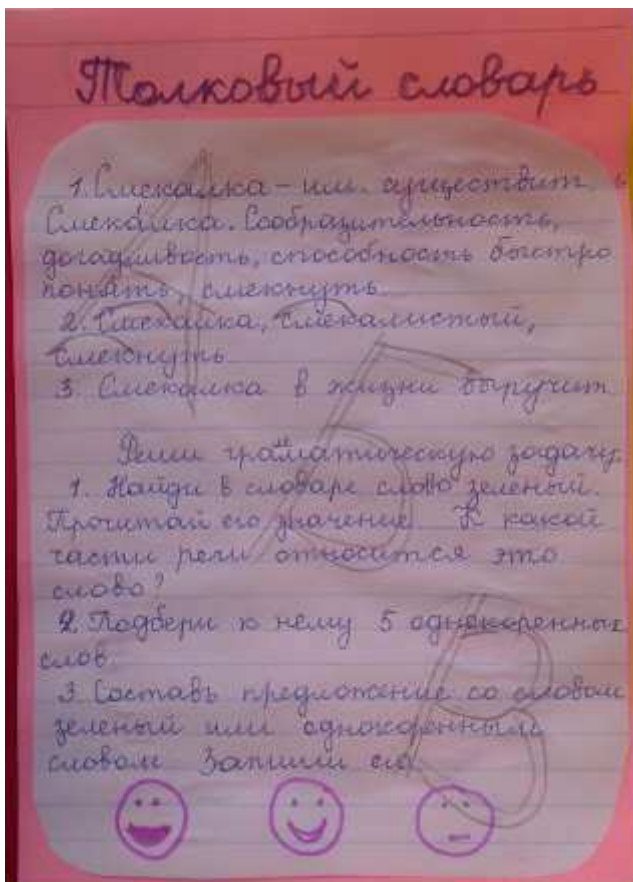 Толковый словарь
1. Смекалка – им. существит.
Смекалка. Сообразительность,
догадливость, способность быстро
понять, смекнуть.
2. Смекалка, смекалистый,
смекнуть
3. Смекалка в жизни выручит
Реши граматическую задачу.
1. Найди в словаре слово зеленый.
Прочитай его значение. К какой
части речи относится это
слово?
2. Подбери к нему 5 однокоренных
слов.
3. Составь предложение со словом
зеленый или однокоренным
словом Запиши